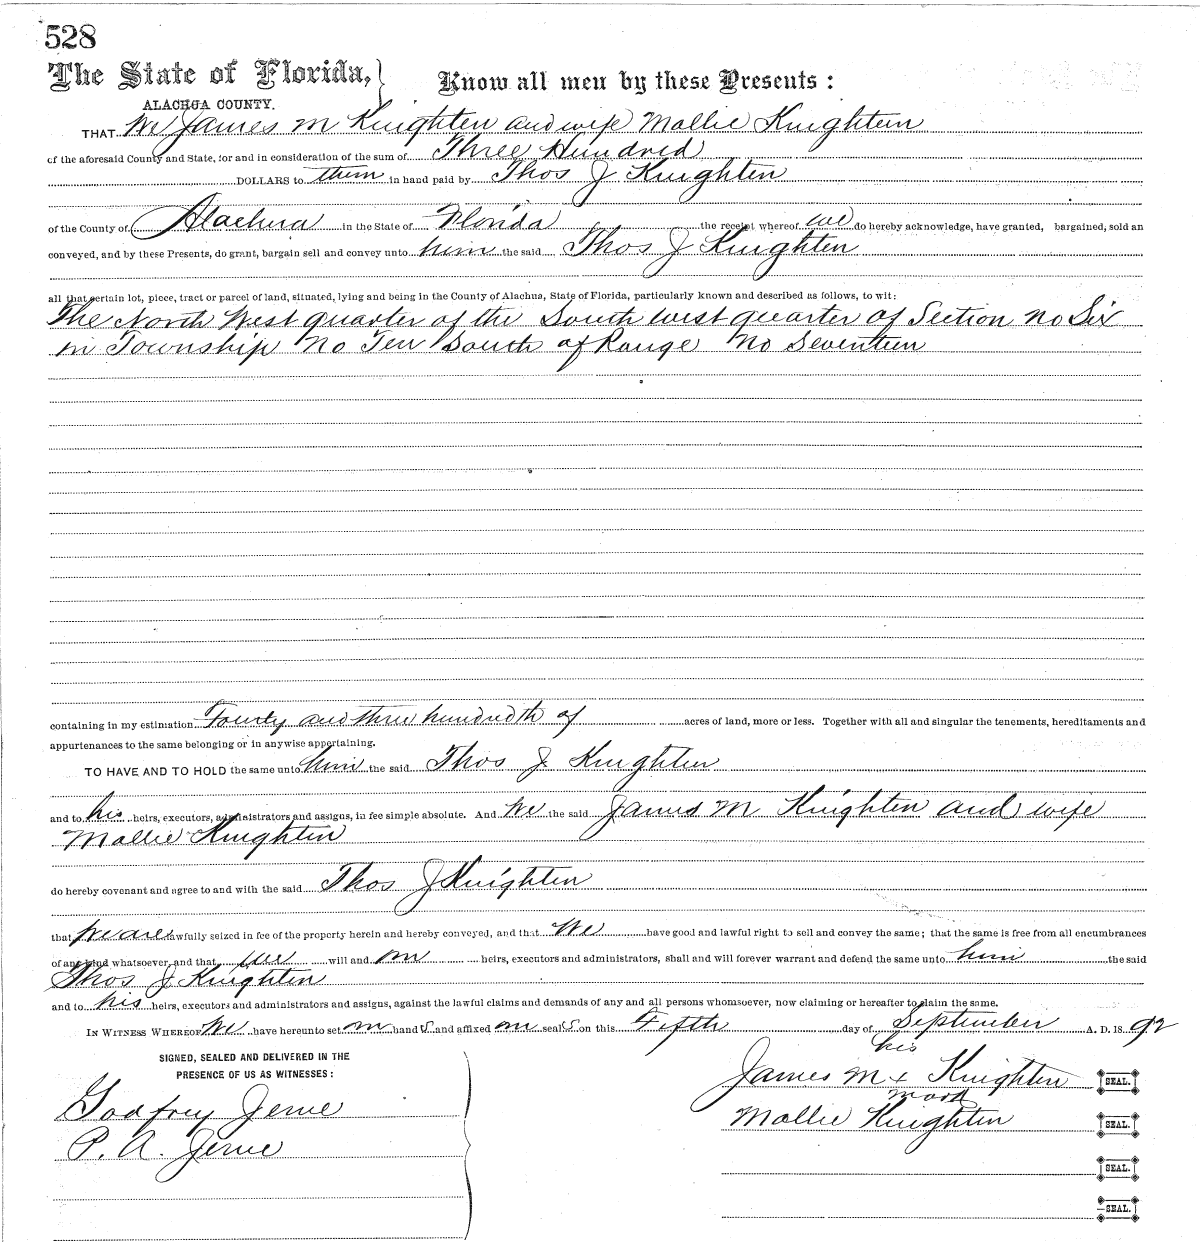 528
The State of Florida,
ALACHUA COUNTY.
Know all men by these Presents:
THAT We James M Knighten and wife Mollie Knighten
of the aforesaid County and State, for and in consideration of the sum of Three Hundred
DOLLARS to them in hand paid by Thos J Knighten
of the County of Alachua in the State of Florida the receipt whereof we do hereby acknowledge, have granted, bargained, sold an
conveyed, and by these Presents, do grant, bargain sell and convey unto him the said Thos J Knighten
all that certain lot, piece, tract or parcel of land, situated, lying and being in the County of Alachua, State of Florida, particularly known and described as follows, to wit:
The North West quarter of the South West quarter of Section No Six
in Township No Ten South of Range No Seventeen
containing in my estimation Fourty and three hundredth of acres of land, more or less. Together with all and singular the tenements, hereditaments and
appurtenances to the same belonging or in anywise appertaining.
TO HAVE AND TO HOLD the same unto him the said Thos J Knighten
and to his heirs, executors, administrators and assigns, in fee simple absolute. And We the said James M Knighten and wife
Mollie Knighten
do hereby covenant and agree to and with the said Thos J Knighten
that We are lawfully seized in fee of the property herein and hereby conveyed, and that We have good and lawful right to sell and convey the same; that the same is free from all encumbrances
of any kind whatsoever, and that we will and our heirs, executors and administrators, shall and will forever warrant and defend the same unto him the said
Thos J Knighten
and to his heirs, executors and administrators and assigns, against the lawful claims and demands of any and all persons whomsoever, now claiming or hereafter to claim the same.
IN WITNESS WHEREOF We have hereunto set our hands and affixed our seals on this Fifth day of September A. D. 1892
SIGNED, SEALED AND DELIVERED IN THE
PRESENCE OF US AS WITNESSES:
his
James M x Knighten SEAL.
mark
Godfrey
Mollie Knighten SEAL.
P. A.
SEAL.
SEAL.